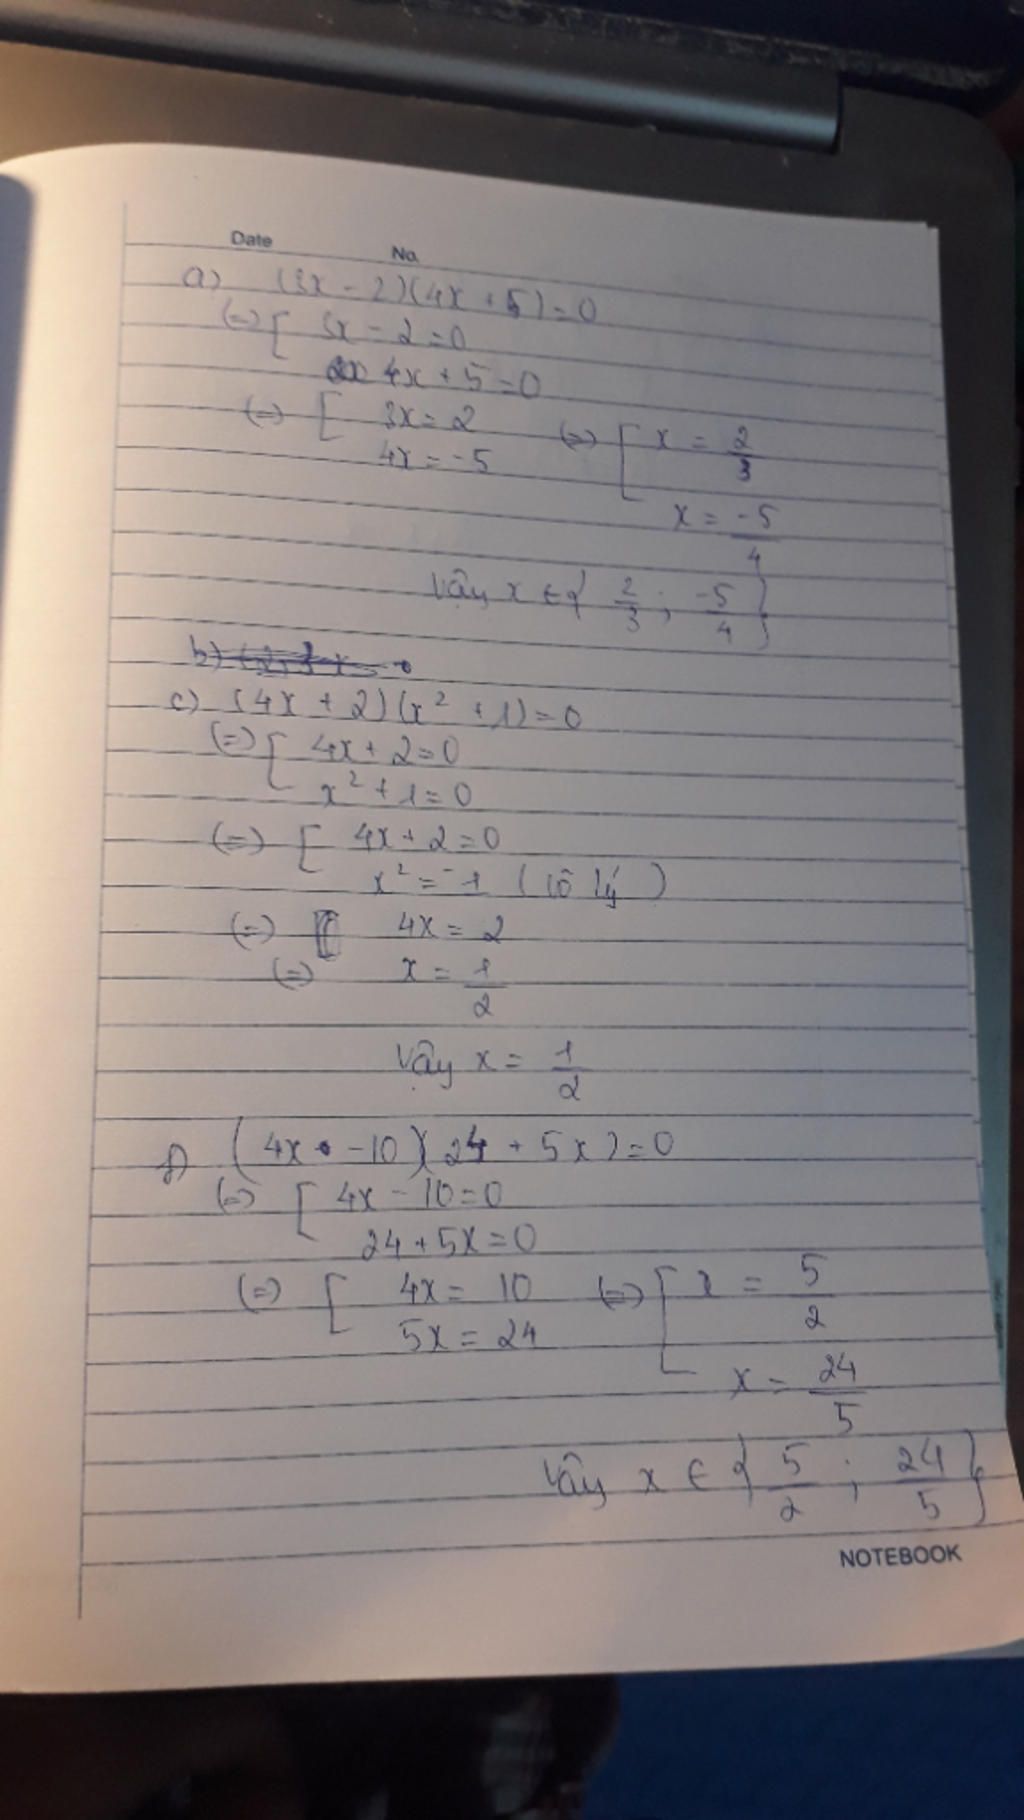 Date No.
a) (3x - 2)(4x + 5) = 0
(=) [ 3x - 2 = 0
4x + 5 = 0
(=) [ 3x = 2 (=) [ x = 2/3
4x = -5
x = -5/4
Vậy x ∈ { 2/3 ; -5/4 }
b)
c) (4x + 2)(x² + 1) = 0
(=) [ 4x + 2 = 0
x² + 1 = 0
(=) [ 4x + 2 = 0
x² = -1 (vô lý)
(=) 4x = 2
(=) x = 1/2
Vậy x = 1/2
f) (4x - 10)(24 + 5x) = 0
(=) [ 4x - 10 = 0
24 + 5x = 0
(=) [ 4x = 10 (=) [ x = 5/2
5x = 24
x = 24/5
Vậy x ∈ { 5/2 ; 24/5 }
NOTEBOOK